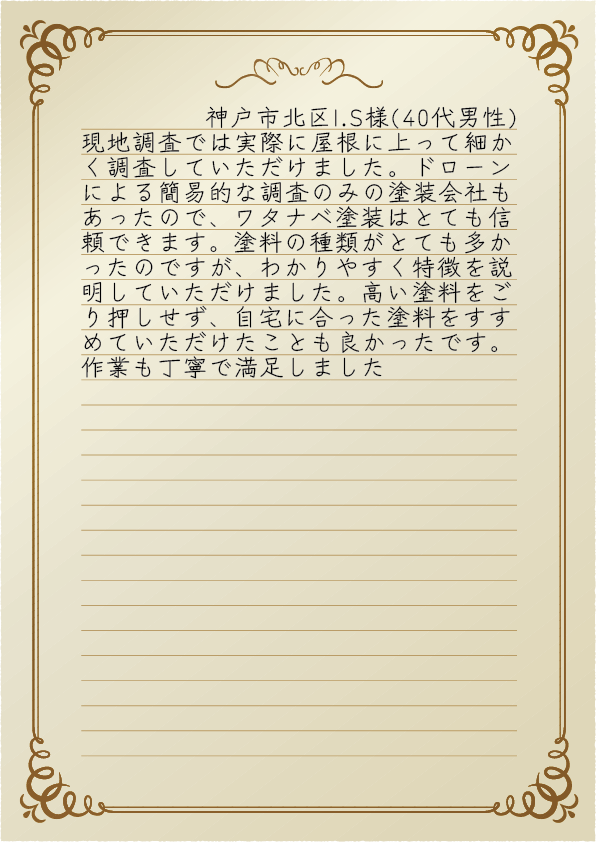 神戸市北区I.S様(40代男性)
現地調査では実際に屋根に上って細か
く調査していただけました。ドローン
による簡易的な調査のみの塗装会社も
あったので、ワタナベ塗装はとても信
頼できます。塗料の種類がとても多か
ったのですが、わかりやすく特徴を説
明していただけました。高い塗料をご
り押しせず、自宅に合った塗料をすす
めていただけたことも良かったです。
作業も丁寧で満足しました